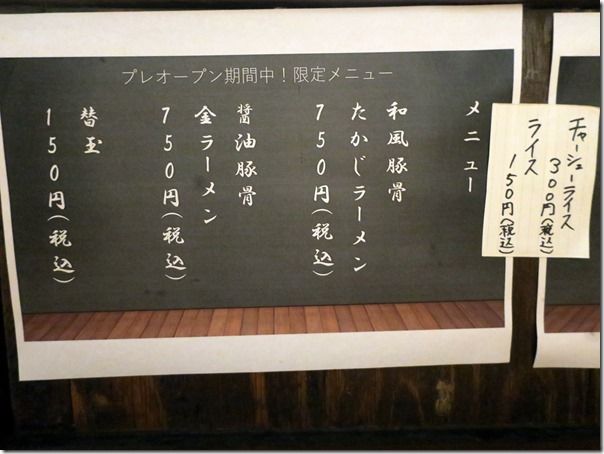 プレオープン期間中！限定メニュー
メニュー
和風豚骨
たかじラーメン
750円(税込)
醤油豚骨
金ラーメン
750円(税込)
替玉
150円(税込)
チャーシューライス
300円(税込)
ライス
150円(税込)